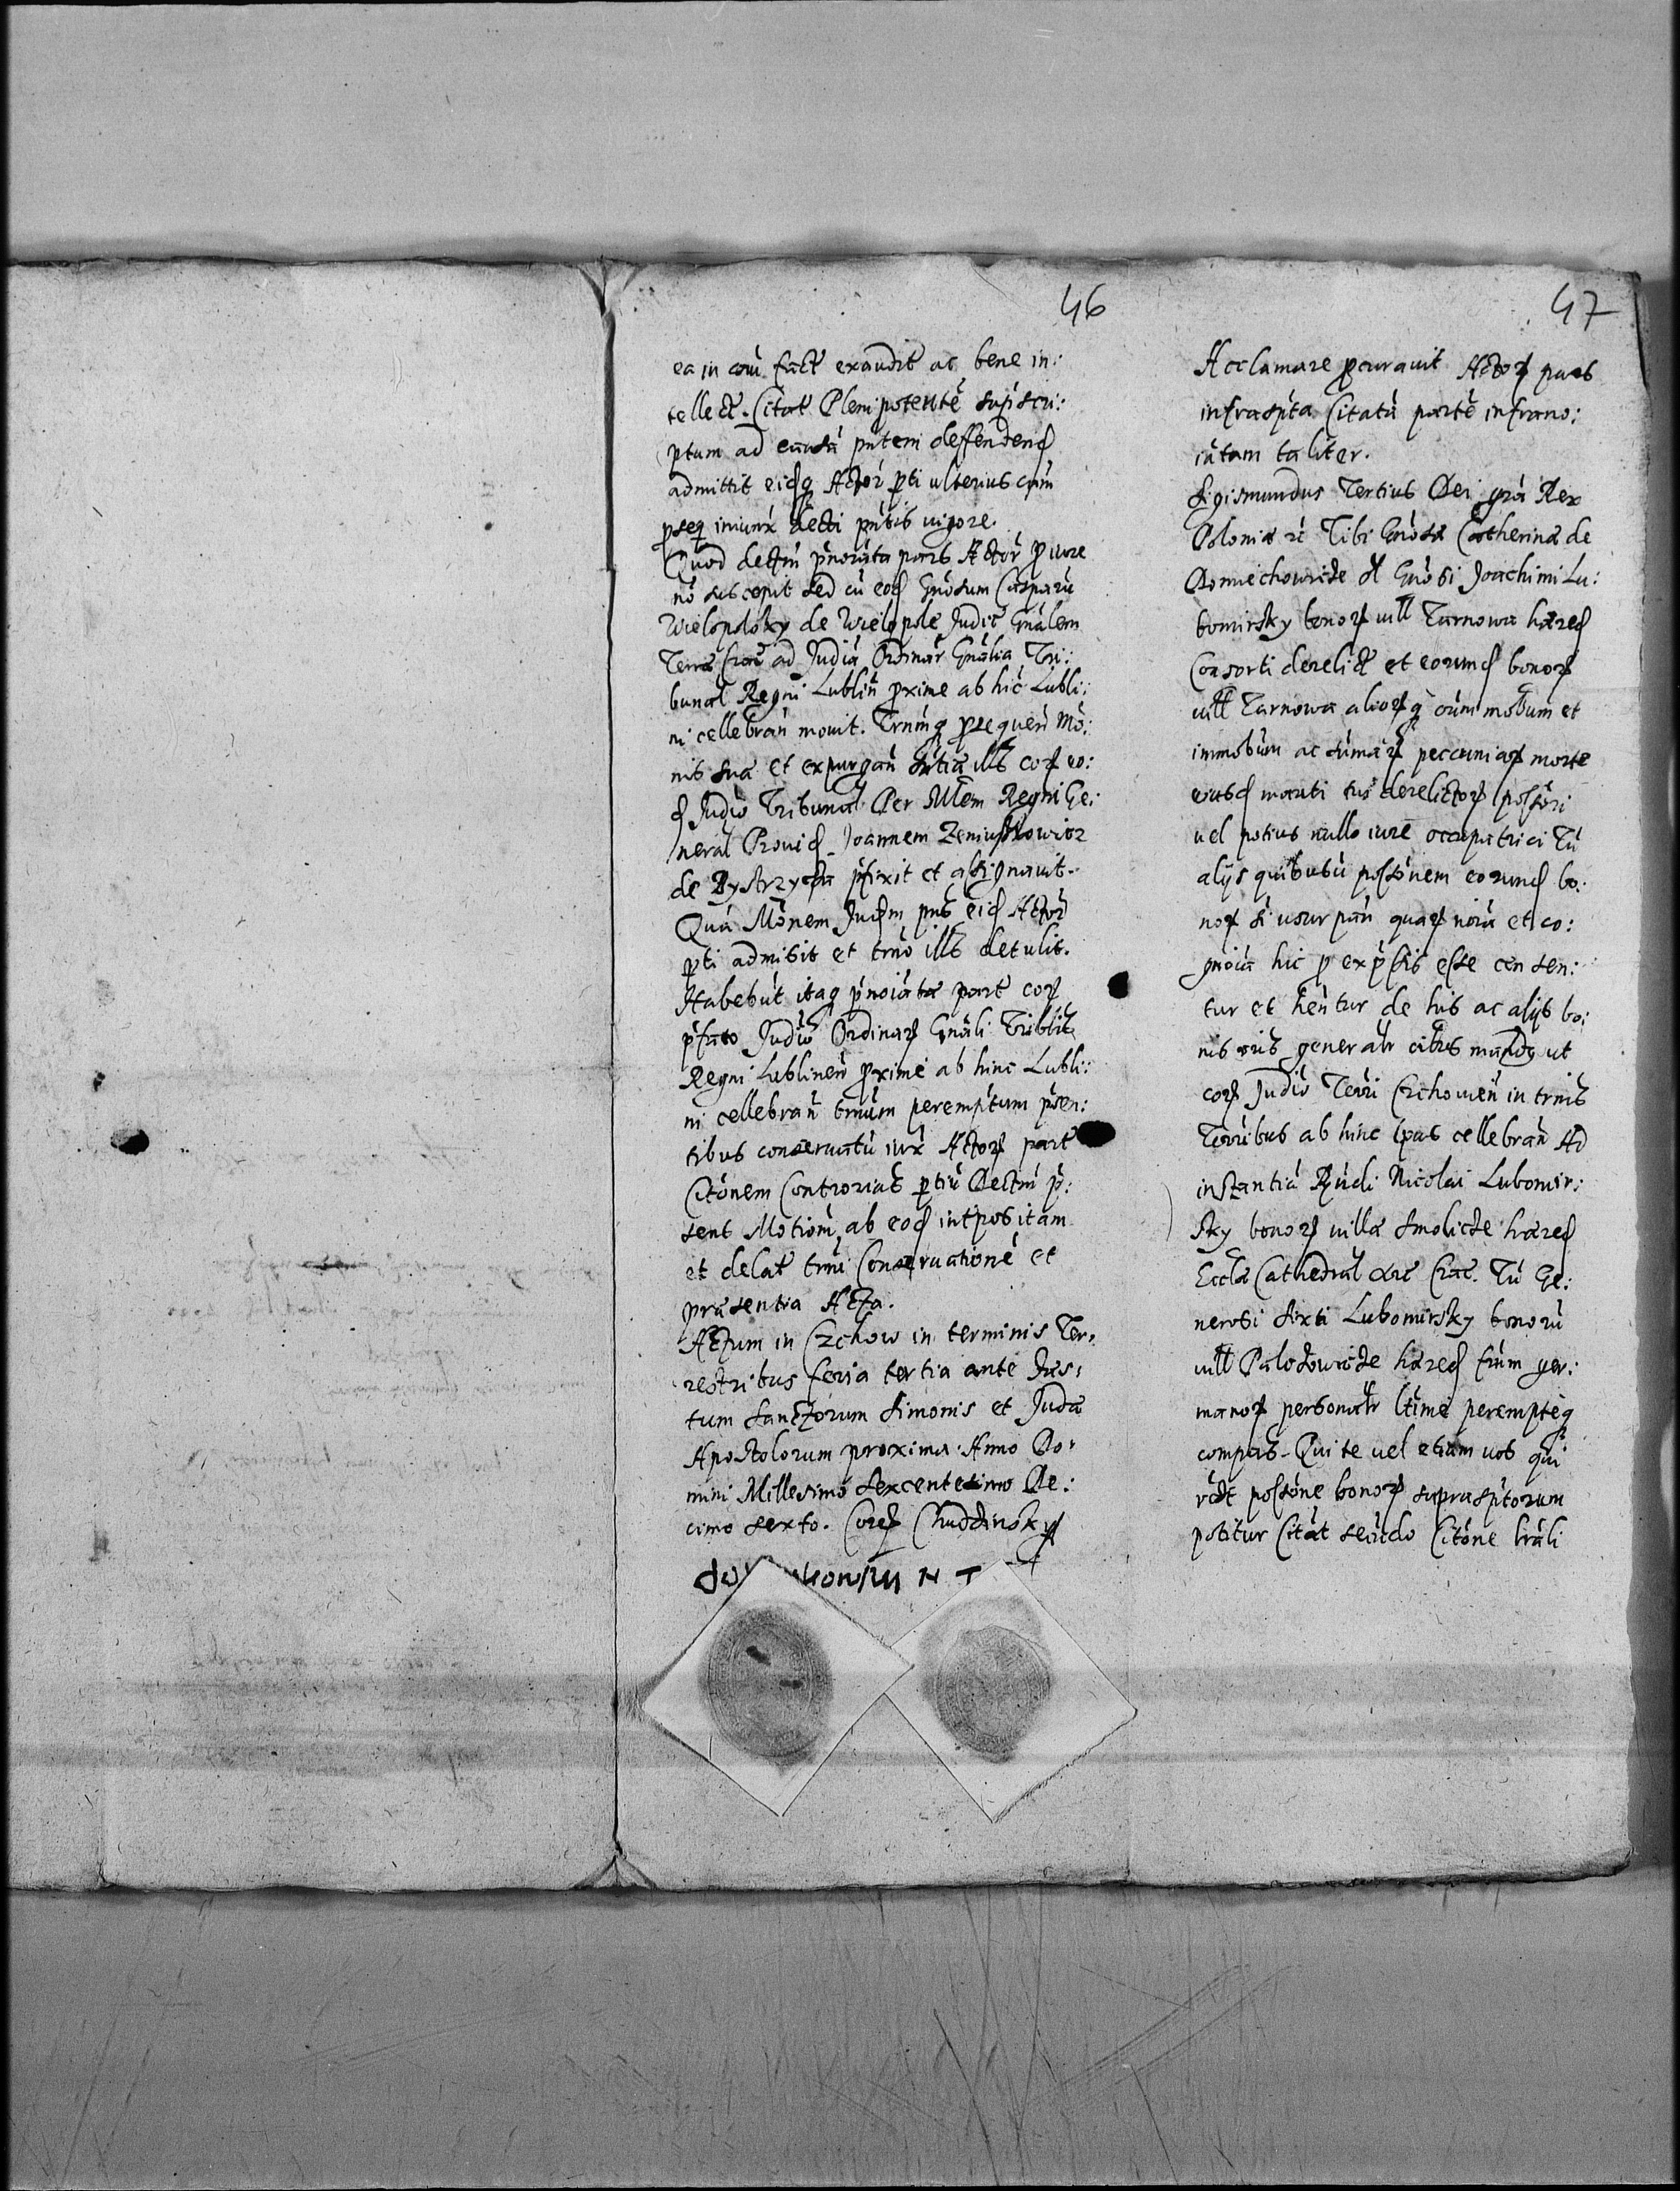 46
ea in coũ fact exaudit ac bene in:
tellect. Citat Plenipotentẽ supscri:
ptum ad causã pñtem deffendend
admittit eidq Actor pti ulterius cum
pseq iniunx decti pñtis uigore.
Quod dectm pñoiata pars Actor p iure
nõ suscepit sed cũ eod Gnosum Casparũ
Wielopolsky de Wielopole Judic Gnalem
Terræ Crac ad Judia Ordinar Gnalia Tri:
bunal Regni Lublin pxime ab hic Lubli:
ni cellebran mouit. Trnumq psequen Mo:
nis suæ et expurgan sntia illt cor eo:
d Judio Tribunal Per Mlem Regni Ge:
neral Prouid Joannem
de Bystrzycza pfixit et assignauit.
Quã Monem Judm pns eid Actor
pti admisit et trno illt detulit.
Habebut itaq pnoiatæ part cor
pfato Judio Ordinar Gnali Triblit
Regni Lublinen pxime ab hinc Lubli:
ni cellebran trnum peremptum psen:
tibus conseruatũ iux Actor part
Citonem Controrias ptiu Dectm p:
sens Motiom ab eod intpositam
et delat trni Conseruationẽ et
præsentia Acta.
Actum in Czchow in terminis Ter:
restribus feria tertia ante Fes:
tum Sanctorum Simonis et Judæ
Apostolorum proxima. Anno Do:
mini Millesimo Sexcentesimo De:
cimo sexto. Cord Chudzinsky
N T
47
Acclamare pcurauit Actor pars
infraspta Citatã partẽ infrano:
iatam taliter.
Sigismundus Tertius Dei gra Rex
Poloniæ rc Tibi Gnosæ Catherinæ de
Domiechowicze Gnosi Joachimi Lu:
bomirsky bonor uill Tarnowa hæred
Consorti derelict et eorund bonor
uill Tarnowa aliorq oium mobum et
immobum ac sumar peccuniar morte
eiusd mariti tui derelictor possori
uel potius nullo iure occupatrici Tũ
alijs quibusũ possonem eorund bo:
nor si usurpan quar noia et co:
gnoia hic p expssis esse censen:
tur et hentur de his ac alijs bo:
nis oris generalr cibus mandq ut
cor Judio Terri Czchouien in trnis
Terribus ab hinc pns cellebran Ad
instantiã Rndi Nicolai Lubomir:
sky bonor uillæ Smolicze hæred
Ecclæ Cathedral Crac. Tũ Ge:
nerosi Sixti Lubomirsky bonorũ
uill Palodowicze hæred frum ger:
manor personalr ltime peremptẽq
compas. Qui te uel etiam uos qui
rõt possone bonor suprasptorum
potitur Citat secudo Citone lrali